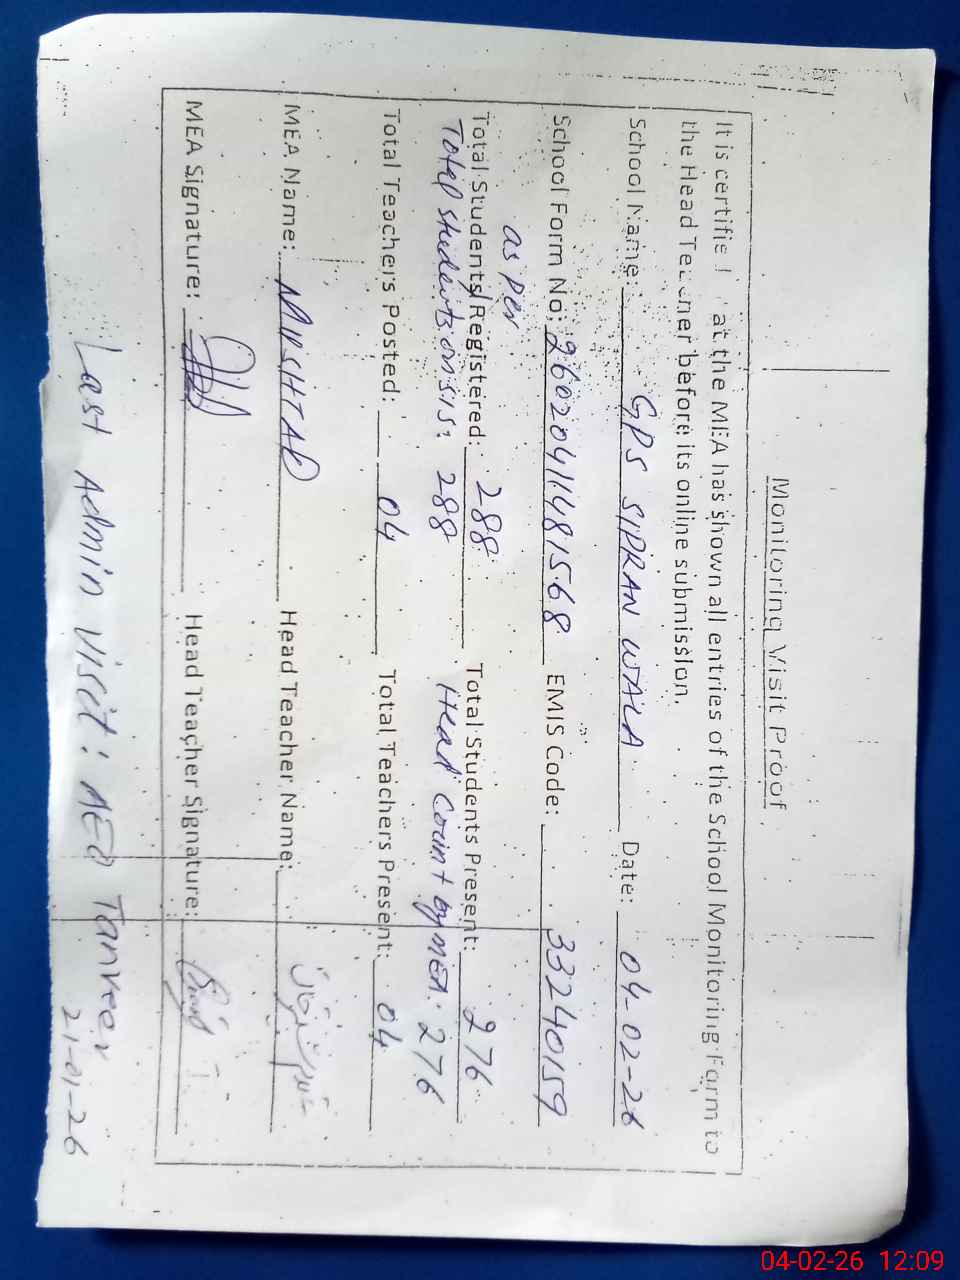 Monitoring Visit Proof
It is certified that the MEA has shown all entries of the School Monitoring Form to
the Head Teacher before its online submission.
School Name: GPS SIPRAN WALA Date: 04-02-26
School Form No: 26020411481568 EMIS Code: 33240159
as per
Total Students Registered: 288 Total Students Present: 276
Total students on SIS: 288 Head Count by MEA: 276
Total Teachers Posted: 04 Total Teachers Present: 04
MEA Name: MUSHTAQ Head Teacher Name:
MEA Signature: Head Teacher Signature:
Last Admin Visit: AEO Tanveer
21-01-26
04-02-26 12:09